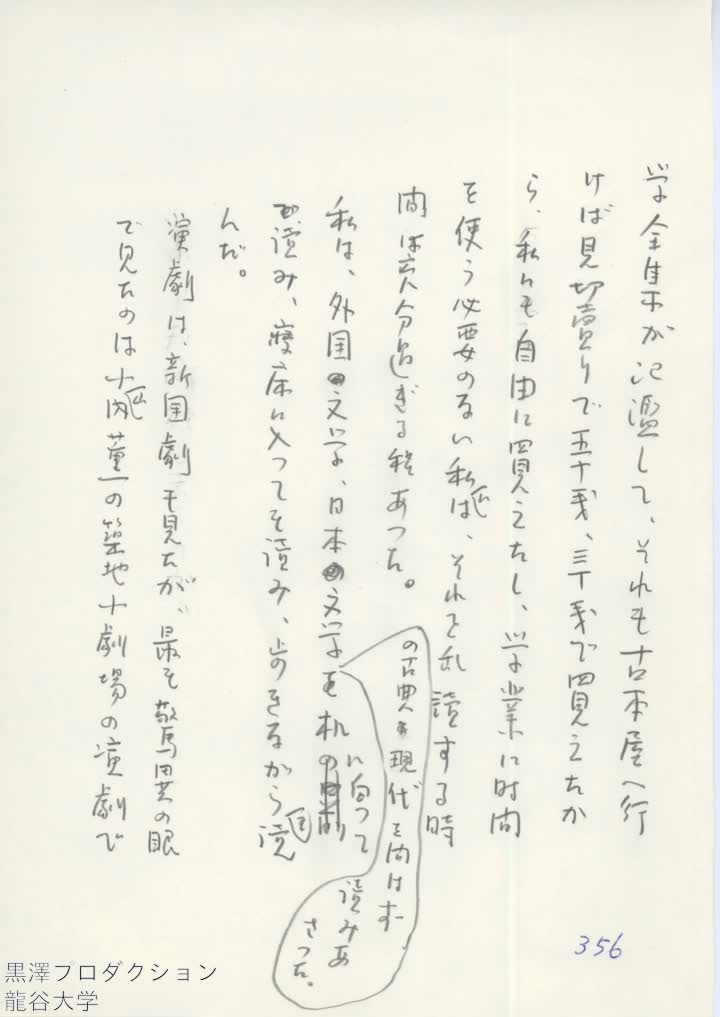 学全集が氾濫して、それも古本屋へ行
けば見切売りで五十銭、三十銭で買えたか
ら、私にも自由に買えたし、学業に時間
を使う必要のない私には、それを乱読する時
間は充分過ぎる程あった。
私は、外国文学、日本文学を机に向って
の古典も現代を問はず、
読みあさった。
も読み、寝床に入っても読み、歩きながらも読
んだ。
演劇は、新国劇も見たが、最も驚異の眼
で見たのは小山内薫の築地小劇場の演劇で
356
黒澤プロダクション
龍谷大学